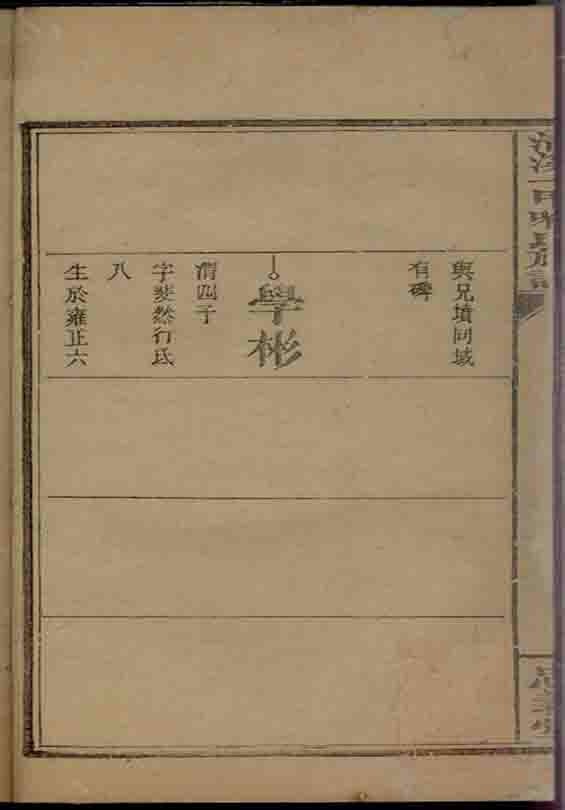 與兄墳同域
有碑
學彬
渭四子
字斐然行氏
八
生於雍正六